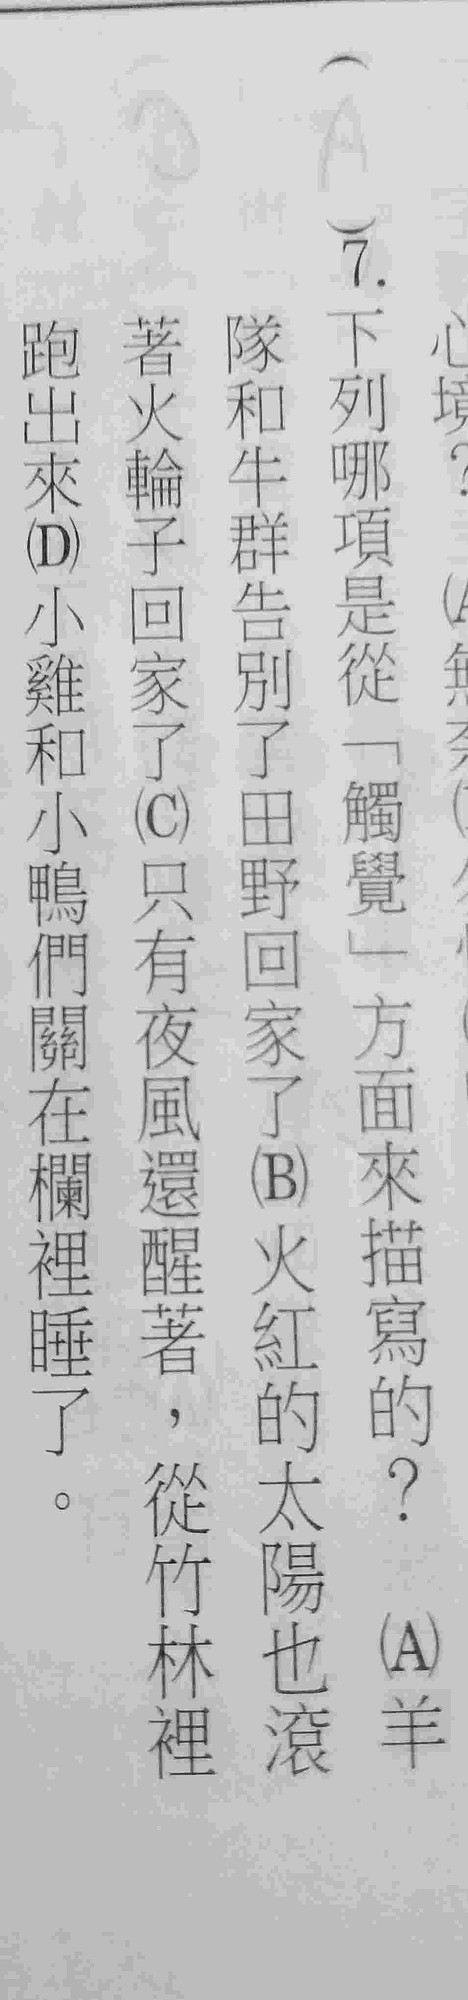 心境？ (A)無奈
( A ) 7. 下列哪項是從「觸覺」方面來描寫的？ (A)羊
隊和牛群告別了田野回家了(B)火紅的太陽也滾
著火輪子回家了(C)只有夜風還醒著，從竹林裡
跑出來(D)小雞和小鴨們關在欄裡睡了。